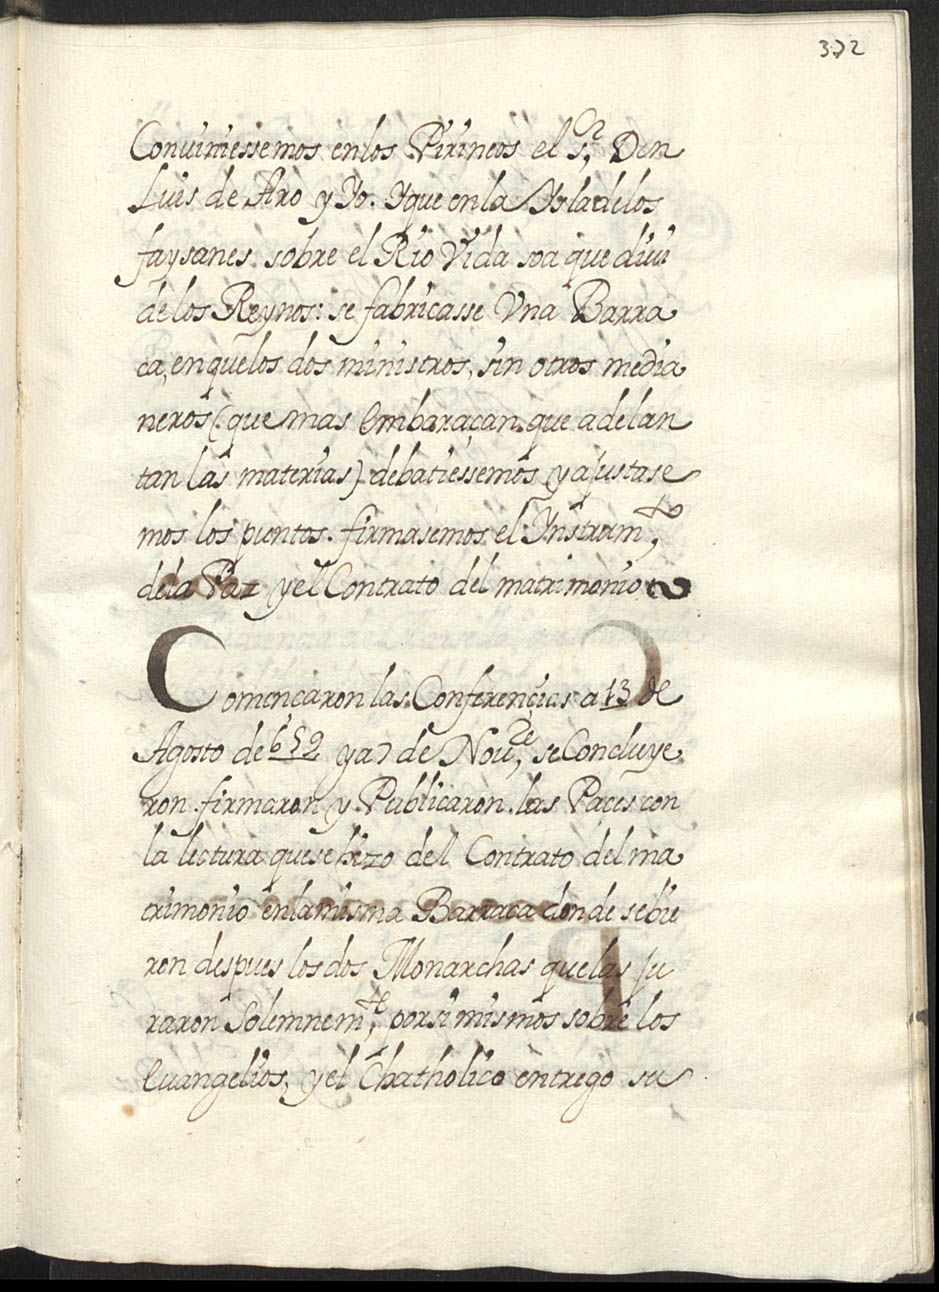 372
Conuiniessemos en los Pirineos el s.or Don
Luis de Aro y Yo. Y que en la Ysla de los
faysanes sobre el Rio Vidasoa que diui
de los Reynos: se fabricasse Vna Barra
ca, en que los dos ministros, sin otros media
neros (que mas embaraçan que adelan
tan las materias) debatiessemos y ajustase
mos los puntos. firmasemos el Ynstrum.to
de la Paz y el Contrato del matrimonio
Comencaron las Conferençias a 13 de
Agosto de 659 y a 7 de Nou.re se Concluye
ron firmaron y Publicaron las Paçes con
la lectura que se hizo del Contrato del ma
trimonio en la misma Barraca donde se bie
ron despues los dos Monarchas que las ju
raron Solemnem.te por si mismos sobre los
euangelios, y el Chatholico entrego su